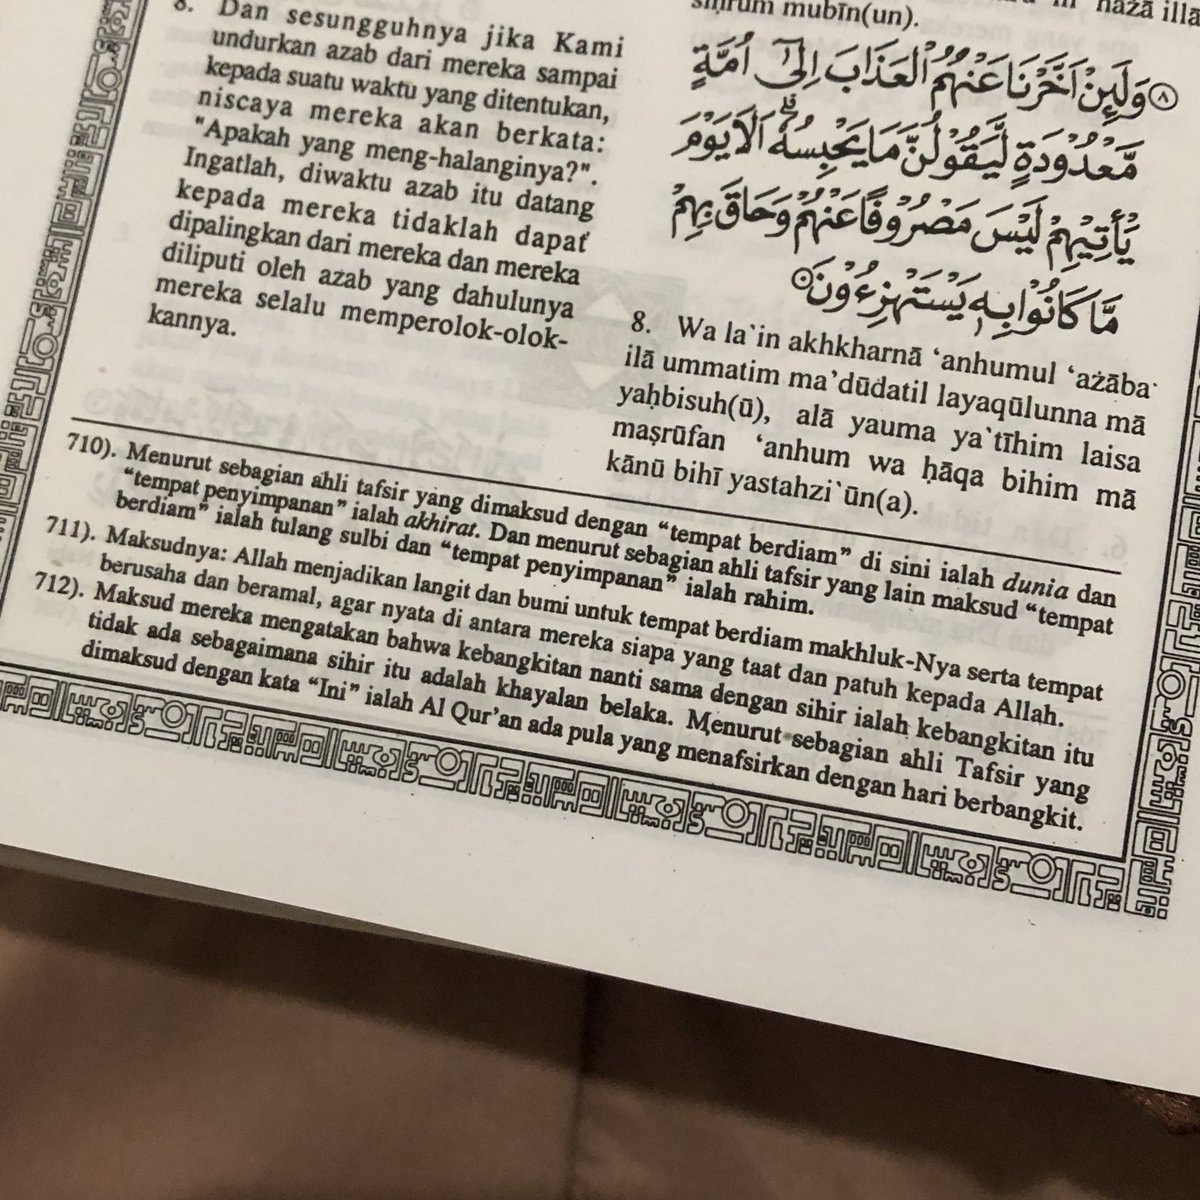 8. Dan sesungguhnya jika Kami
undurkan azab dari mereka sampai
kepada suatu waktu yang ditentukan,
niscaya mereka akan berkata:
"Apakah yang meng-halanginya?".
Ingatlah, diwaktu azab itu datang
kepada mereka tidaklah dapat
dipalingkan dari mereka dan mereka
diliputi oleh azab yang dahulunya
mereka selalu memperolok-olok-
kannya.
mubīn(un).
وَلَىِٕنْ اَخَّرْنَا عَنْهُمُ الْعَذَابَ اِلٰٓى اُمَّةٍ
مَّعْدُوْدَةٍ لَّيَقُوْلُنَّ مَا يَحْبِسُهٗ ۗ اَلَا يَوْمَ
يَأْتِيْهِمْ لَيْسَ مَصْرُوْفًا عَنْهُمْ وَحَاقَ بِهِمْ
مَّا كَانُوْا بِهٖ يَسْتَهْزِءُوْنَ
8. Wa la`in akhkharnā ‘anhumul ‘ażāba
ilā ummatim ma’dūdatil layaqūlunna mā
yaḥbisuh(ū), alā yauma ya`tīhim laisa
maṣrūfan ‘anhum wa ḥāqa bihim mā
kānū bihī yastahzi`ūn(a).
710). Menurut sebagian ahli tafsir yang dimaksud dengan “tempat berdiam” di sini ialah dunia dan
“tempat penyimpanan” ialah akhirat. Dan menurut sebagian ahli tafsir yang lain maksud “tempat
berdiam” ialah tulang sulbi dan “tempat penyimpanan” ialah rahim.
711). Maksudnya: Allah menjadikan langit dan bumi untuk tempat berdiam makhluk-Nya serta tempat
berusaha dan beramal, agar nyata di antara mereka siapa yang taat dan patuh kepada Allah.
712). Maksud mereka mengatakan bahwa kebangkitan nanti sama dengan sihir ialah kebangkitan itu
tidak ada sebagaimana sihir itu adalah khayalan belaka. Menurut sebagian ahli Tafsir yang
dimaksud dengan kata “Ini” ialah Al Qur’an ada pula yang menafsirkan dengan hari berbangkit.